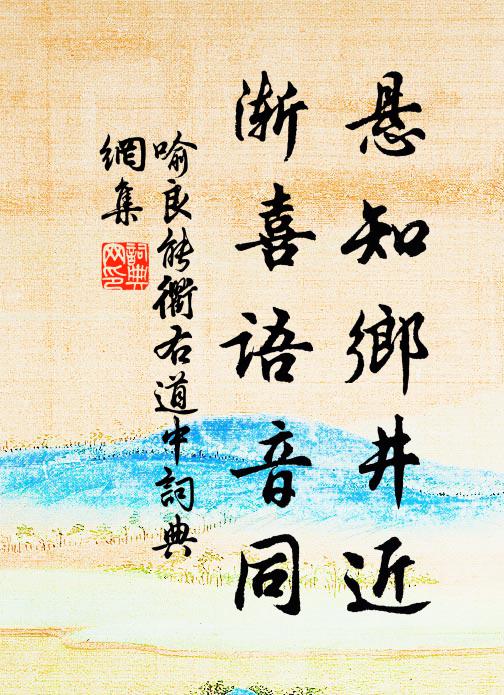 悬知鄉井近
渐喜语音同
喻良能衢右道中詞典
網集
詞典
网印